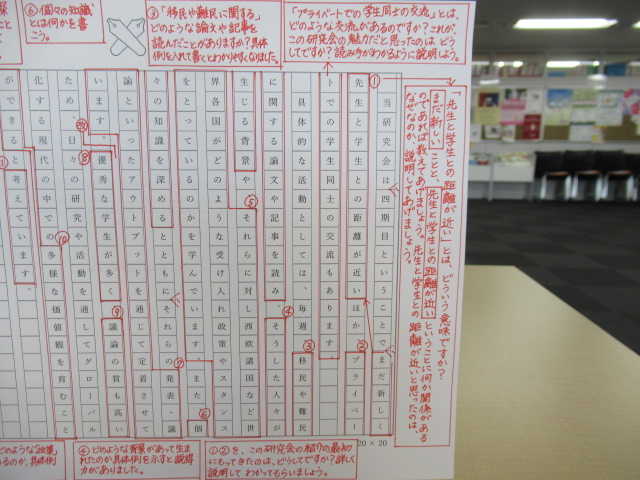 「プライベートでの学生同士の交流」とは、
どのような交流があるのですか？これが、
この研究会の魅力だと思ったのは、どうし
てですか？読み手がわかるように説明しよう。
③「移民や難民に関する」
どのような論文や記事を
読んだことがありますか？具体
例を入れて書くとわかりやすくなりました。
⑥個々の知識
とは何かを書
こう。
「先生と学生との距離が近い」とは、どういう意味ですか？
まだ新しいことと、先生と学生との距離が近いということに何か関係がある
のであれば教えてあげましょう。先生と学生との距離が近いと思ったのは、
なぜなのか、説明してあげましょう。
①
当研究会は四期目ということでまだ新しく
先生と学生との距離が近いほか②プライベー
トでの学生同士の交流もあります
具体的な活動としては、毎週③移民や難民
に関する論文や記事を読み、④そうした人々が
生じる背景や⑤それらに対し西欧諸国など世
界各国がどのような受け入れ政策やスタンス
をとっているのかを学んでいます。また⑥個
々の知識を深めるとともにそれらの⑦発表・議
論といったアウトプットを通じて定着させて
います。⑧優秀な学生が多く⑨議論の質も高い
ため、日々の研究や活動を通してグローバル
化する現代の中での⑩多様な価値観を育むこと
ができると考えています。
20×20
①②を、この研究会の紹介の最初
にもってきたのは、どうしてですか？詳しく
説明して わかってもらいましょう。
④どのような背景があって生ま
れたのか具体例を示すと説得
力がありました。
どのような「政策」
いるのか、具体例